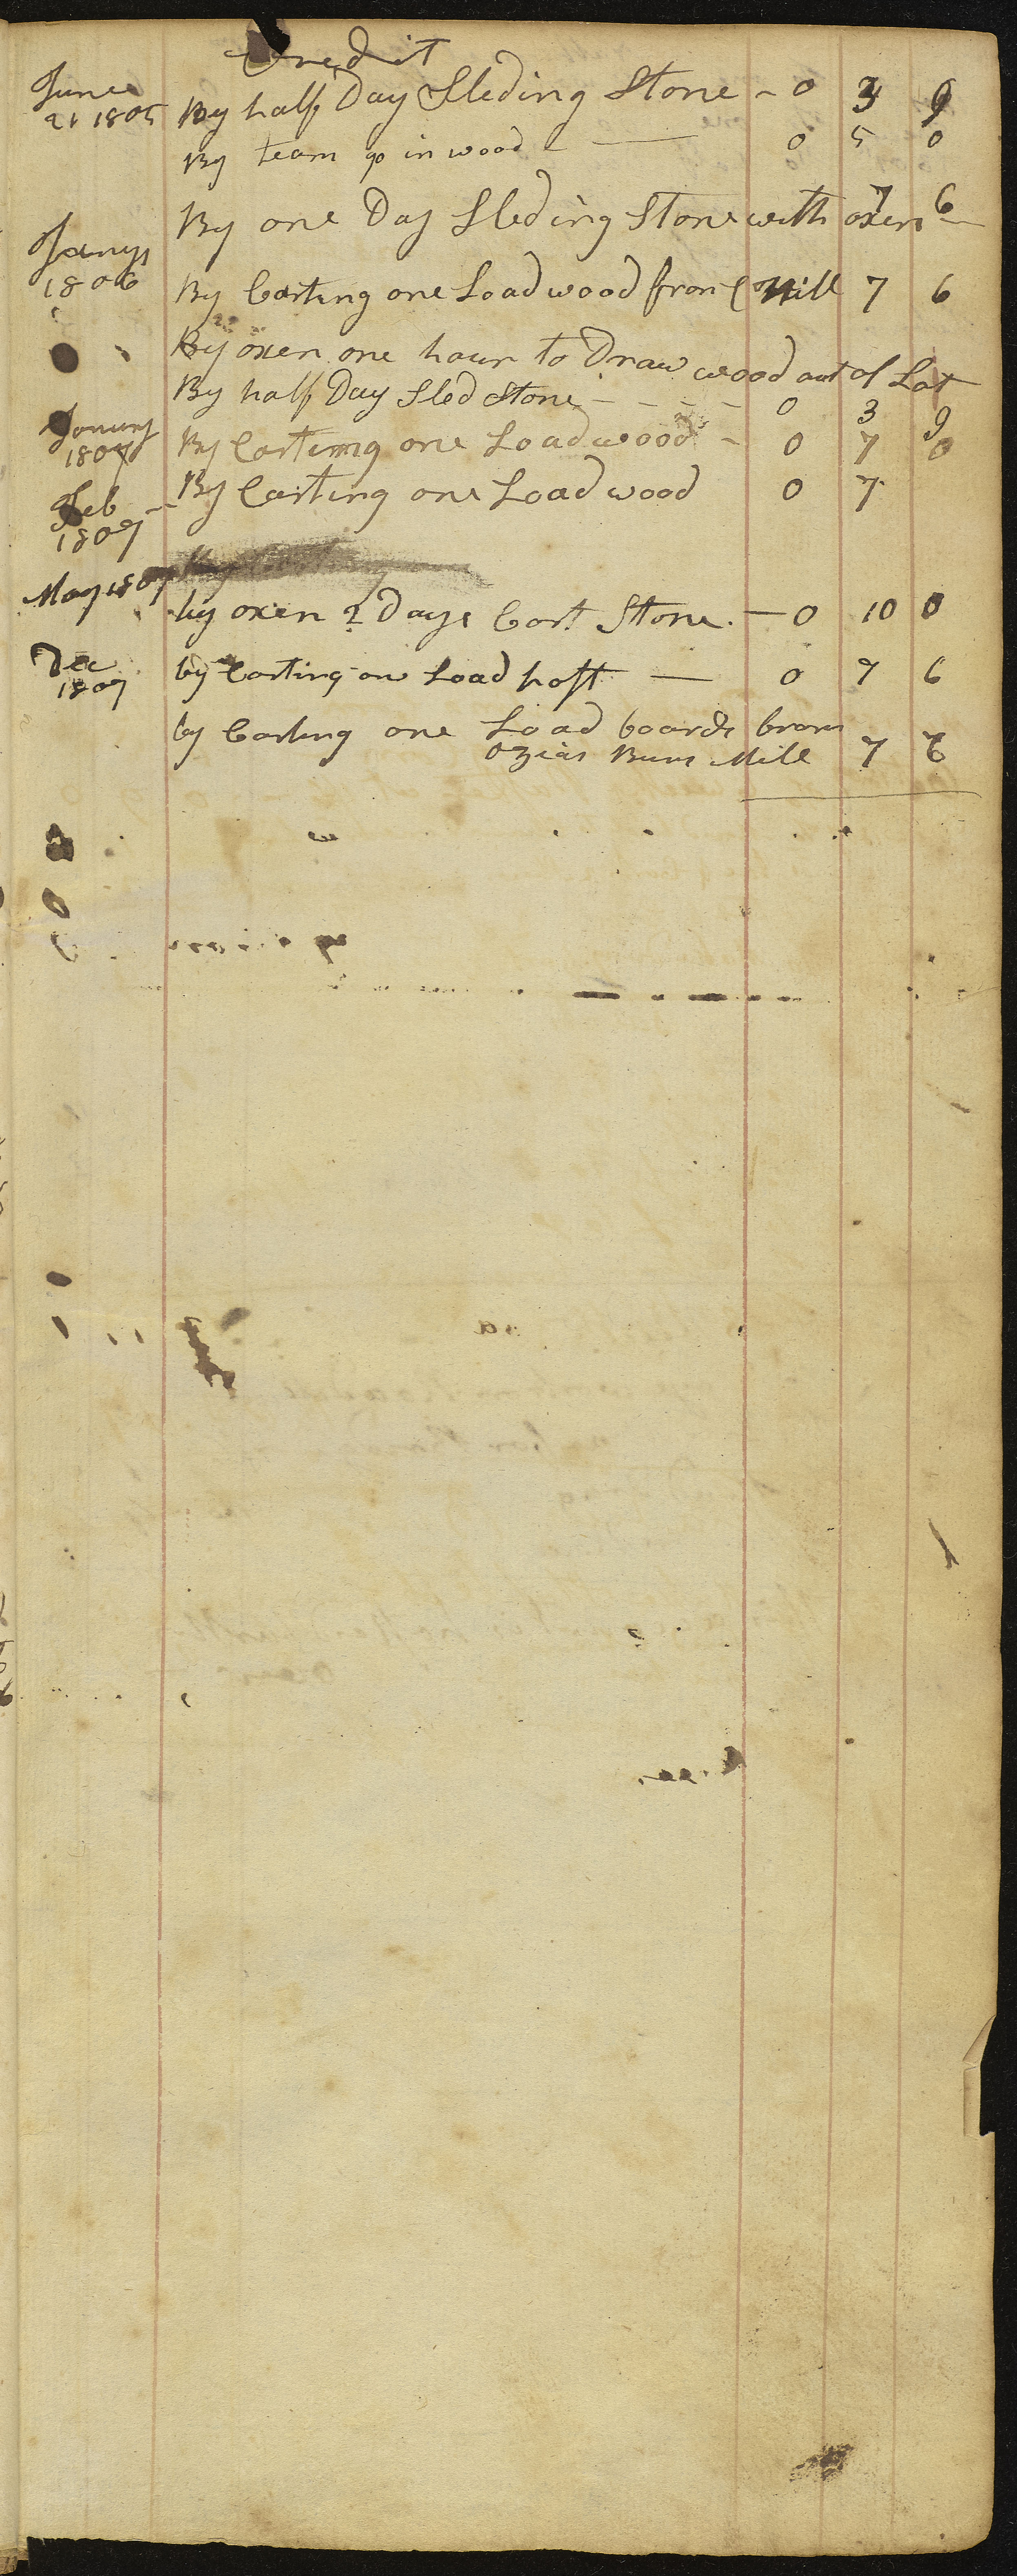 Credit
June 21 1805 By half Day Sleding Stone - 0 3 9
By team go in wood - 0 5 0
By one Day Sleding Stone with oxen 7 6
Janury 1806 By Carting one Load wood from Hill 7 6
By oxen one hour to Draw wood out of Lot
By half Day Sled Stone - - - - 0 3 9
Janury 1807 By Carting one Load wood - 0 7 0
Feb 1807 By Carting one Load wood 0 7
May 1807
by oxen 2 Days Cart Stone. - 0 10 0
Dec 1807 by Carting on Load post - 0 7 6
by Carting one Load boards from
Ozias Burs Mill 7 6